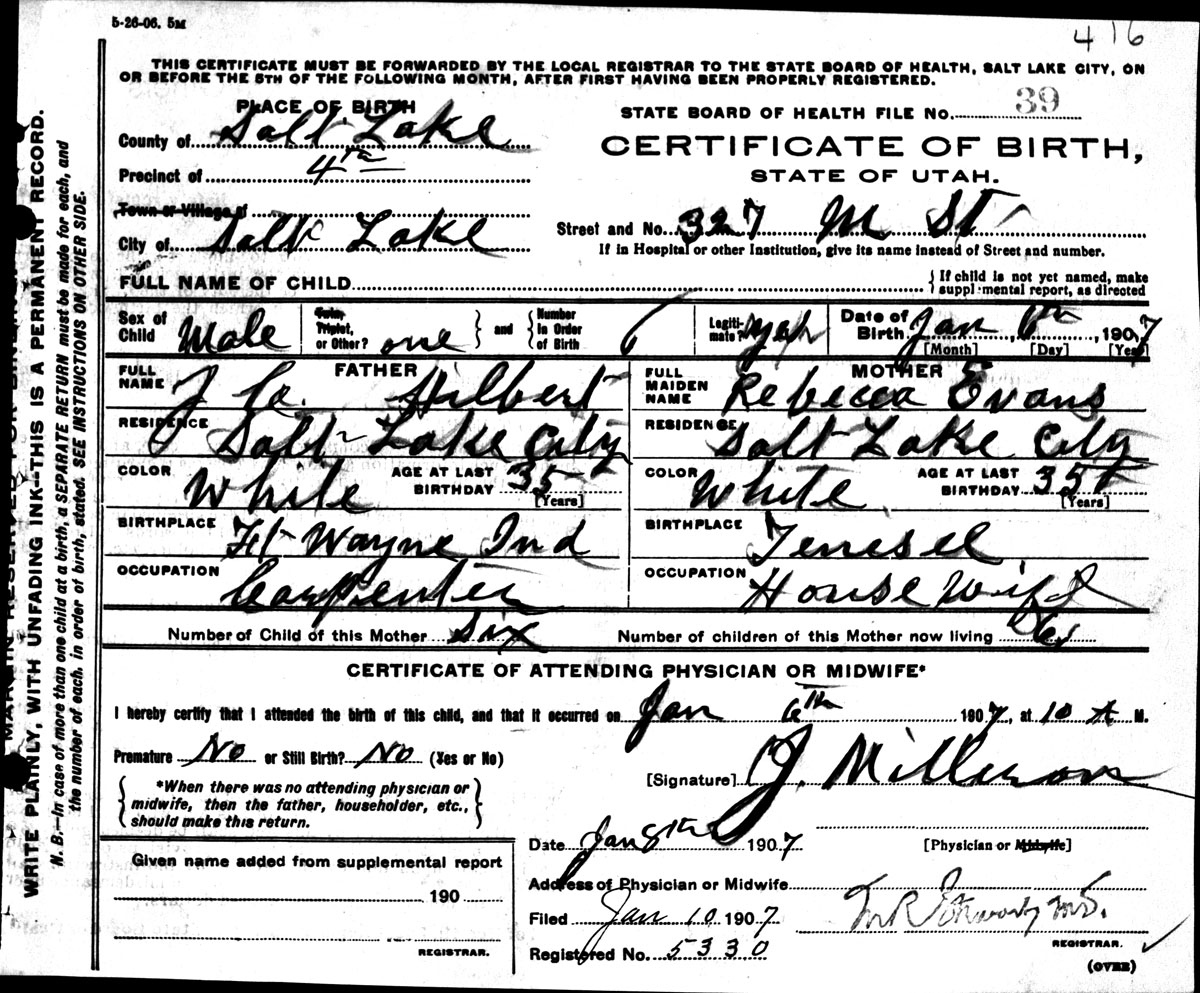 5-26-06. 5M
416
THIS CERTIFICATE MUST BE FORWARDED BY THE LOCAL REGISTRAR TO THE STATE BOARD OF HEALTH, SALT LAKE CITY, ON
OR BEFORE THE 5TH OF THE FOLLOWING MONTH, AFTER FIRST HAVING BEEN PROPERLY REGISTERED.
PLACE OF BIRTH
County of Salt Lake
Precinct of 4th
Town or Village of
City of Salt Lake
STATE BOARD OF HEALTH FILE NO. 39
CERTIFICATE OF BIRTH,
STATE OF UTAH.
Street and No. 327 M St
If in Hospital or other Institution, give its name instead of Street and number.
FULL NAME OF CHILD
{ If child is not yet named, make
supplemental report, as directed
Sex of Child Male
Twin, Triplet, or Other? one } and { Number in Order of Birth 6
Legitimate? yes
Date of Birth Jan 6th, 1907
[Month] [Day] [Year]
FATHER
FULL NAME J Hilbert
RESIDENCE Salt Lake City
COLOR White AGE AT LAST BIRTHDAY 35 [Years]
BIRTHPLACE Ft Wayne Ind
OCCUPATION Carpenter
MOTHER
FULL MAIDEN NAME Rebecca Evans
RESIDENCE Salt Lake City
COLOR White AGE AT LAST BIRTHDAY 35 [Years]
BIRTHPLACE Tenesee
OCCUPATION House Wife
Number of Child of this Mother six
Number of children of this Mother now living
CERTIFICATE OF ATTENDING PHYSICIAN OR MIDWIFE*
I hereby certify that I attended the birth of this child, and that it occurred on Jan 6th 1907, at 10 A M.
Premature No or Still Birth? No (Yes or No)
{ *When there was no attending physician or
midwife, then the father, householder, etc.,
should make this return. }
[Signature] J. Millerson
Date Jan 8th 1907
[Physician or Midwife]
Address of Physician or Midwife
Filed Jan 10 1907
Registered No. 5330
M.D.
REGISTRAR.
(OVER)
Given name added from supplemental report
190
REGISTRAR.
MARGIN RESERVED FOR BINDING
WRITE PLAINLY, WITH UNFADING INK—THIS IS A PERMANENT RECORD.
N. B.—In case of more than one child at a birth, a SEPARATE RETURN must be made for each, and
the number of each, in order of birth, stated. SEE INSTRUCTIONS ON OTHER SIDE.